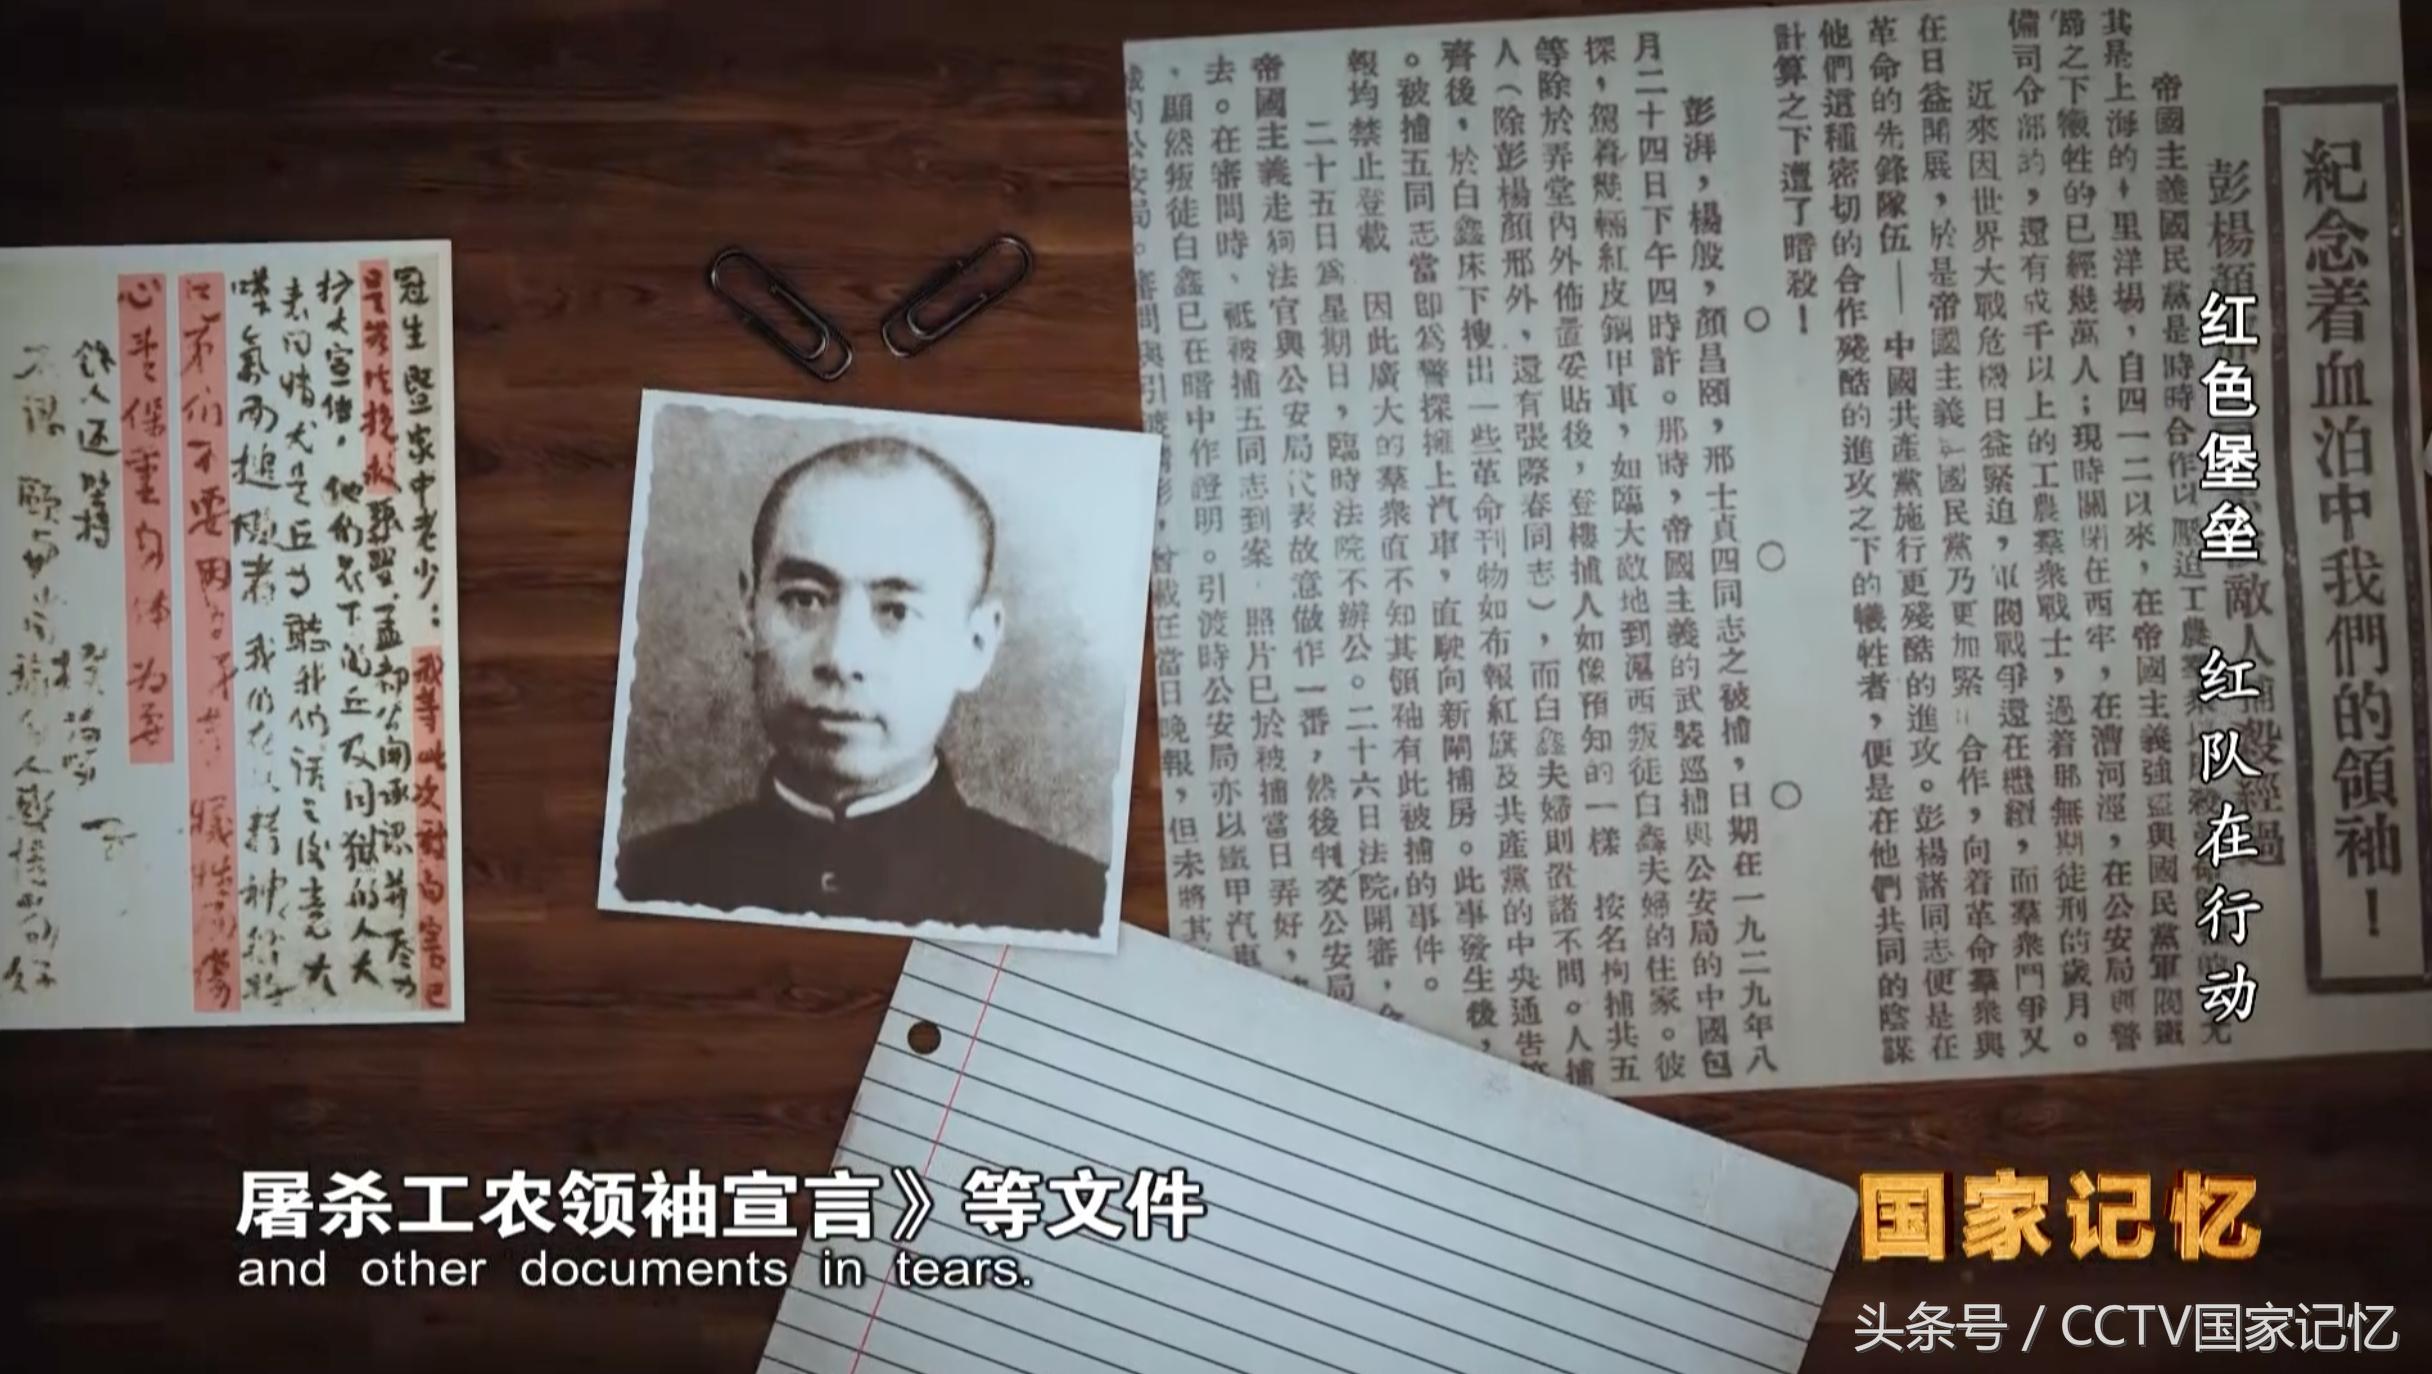 紀念着血泊中我們的領袖！
帝國主義國民黨是時時合作以壓迫工農
其是上海的十里洋場，自四一二以來，在帝國主義強盜與國民黨軍閥鐵
蹄之下犧牲的已經幾萬人；現時關閉在西牢，在漕河涇，在公安局與警
備司令部的，還有成千以上的工農羣衆戰士，過着那無期徒刑的歲月。
近來因世界大戰危機日益緊迫，軍閥戰爭還在繼續，而羣衆鬥爭又
在日益開展，於是帝國主義與國民黨乃更加緊合作，向着革命羣衆與
革命的先鋒隊伍——中國共產黨施行更殘酷的進攻。彭楊諸同志便是在
他們這種密切的合作殘酷的進攻之下的犧牲者，便是在他們共同的陰謀
計算之下遭了暗殺！
○ ○ ○
彭湃，楊殷，顏昌頤，邢士貞四同志之被捕，日期在一九二九年八
月二十四日下午四時許。那時，帝國主義的武裝巡捕與公安局的中國包
探，駕着幾輛紅皮鋼甲車，如臨大敵地到滬西叛徒白鑫夫婦的住家。彼
等除於弄堂內外佈置妥貼後，登樓捕人如像預知的一樣 按名拘捕共五
人（除彭楊顏邢外，還有張際春同志），而白鑫夫婦則置諸不問。人捕
齊後，於白鑫床下搜出一些革命刊物如布報紅旗及共產黨的中央通告等
。被捕五同志當即爲警探擁上汽車，直駛向新閘捕房。此事發生後，
報均禁止登載 因此廣大的羣衆直不知其領袖有此被捕的事件。
二十五日爲星期日，臨時法院不辦公。二十六日法院開審，
帝國主義走狗法官與公安局代表故意做作一番，然後判交公安局
去。在審問時、祗被捕五同志到案，照片已於被捕當日弄好，
，顯然叛徒白鑫已在暗中作證明。引渡時公安局亦以鐵甲汽車
城內公安局。審問與引渡情形，曾載在當日晚報，但未將其
红色堡垒 红队在行动
冠生暨家中老少：我等此次被白害已
是無法挽救張、孟都公開承認并尽力
扩大宣传。他們底下的丘及同狱的人大
表同情尤是丘等聽我們話之後竟大
嘆氣而槌胸者我們在此精神很好
兄弟們不要因弟等牺牲而伤
心望保重身体为要
餘人还堅持
屠杀工农领袖宣言》等文件
and other documents in tears.
国家记忆
头条号 / CCTV国家记忆